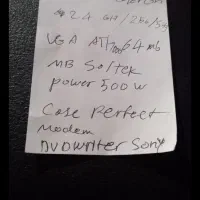 2.4
VGA ATI 64 mb
MB Soltek
power 500 w
Case Perfect
Modem
DVDwriter Sony